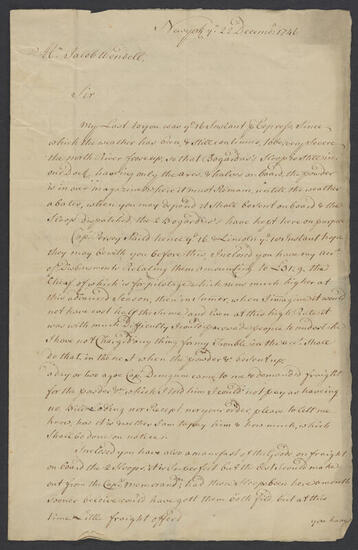 Newyork ye 22 Decembr 1746
Mr Jacob Wendell
Sir
My Last to you was ye 16 Instant Express, Since
which the weather has been, & still continues, to be very Severe
the north River froze up, so that Bogardus's Sloop is still in
our Dock having only the axes & Shalos on board, the powder
is in our magazine where it must Remain, untill the weather
abates, when you may depend it shall be sent on board & the
Sloop dispatched, the 2 Bogardus's have kept here on purpose
Capt Saild hence ye 16 & Lincoln ye 10 Instant hope
they may be with you before this, Inclosed you have my acct
of Disbursments Relating them amounting to
Cheaf of which is for pilotage which now much higher at
this advanced Season, then in Sumer, when I imagine it would
not have cost half the Sume, and Even at this high Rate it
was with much Difficulty I could perswade people to undertake it
I have not Charged any thing for my Trouble in the acct shall
do that, in the next when the powder & is sent up
a day or two agoe Capt came to me & demand'd freight
for the powder & which I told him I could not pay as having
no Bill Loding nor Receipt nor your order, please to lett me
know, has it is neither I am to pay him & how much, which
Shall be done on notice
Inclosed you have also a manifest of the Goods on freight
on board the 2 Sloops, it is Imperfect but the best I could make
out from the Capts Memorandm, had those Sloops been here a month
sooner beleive could have gott them both full but at this
time Little freight offers
you have